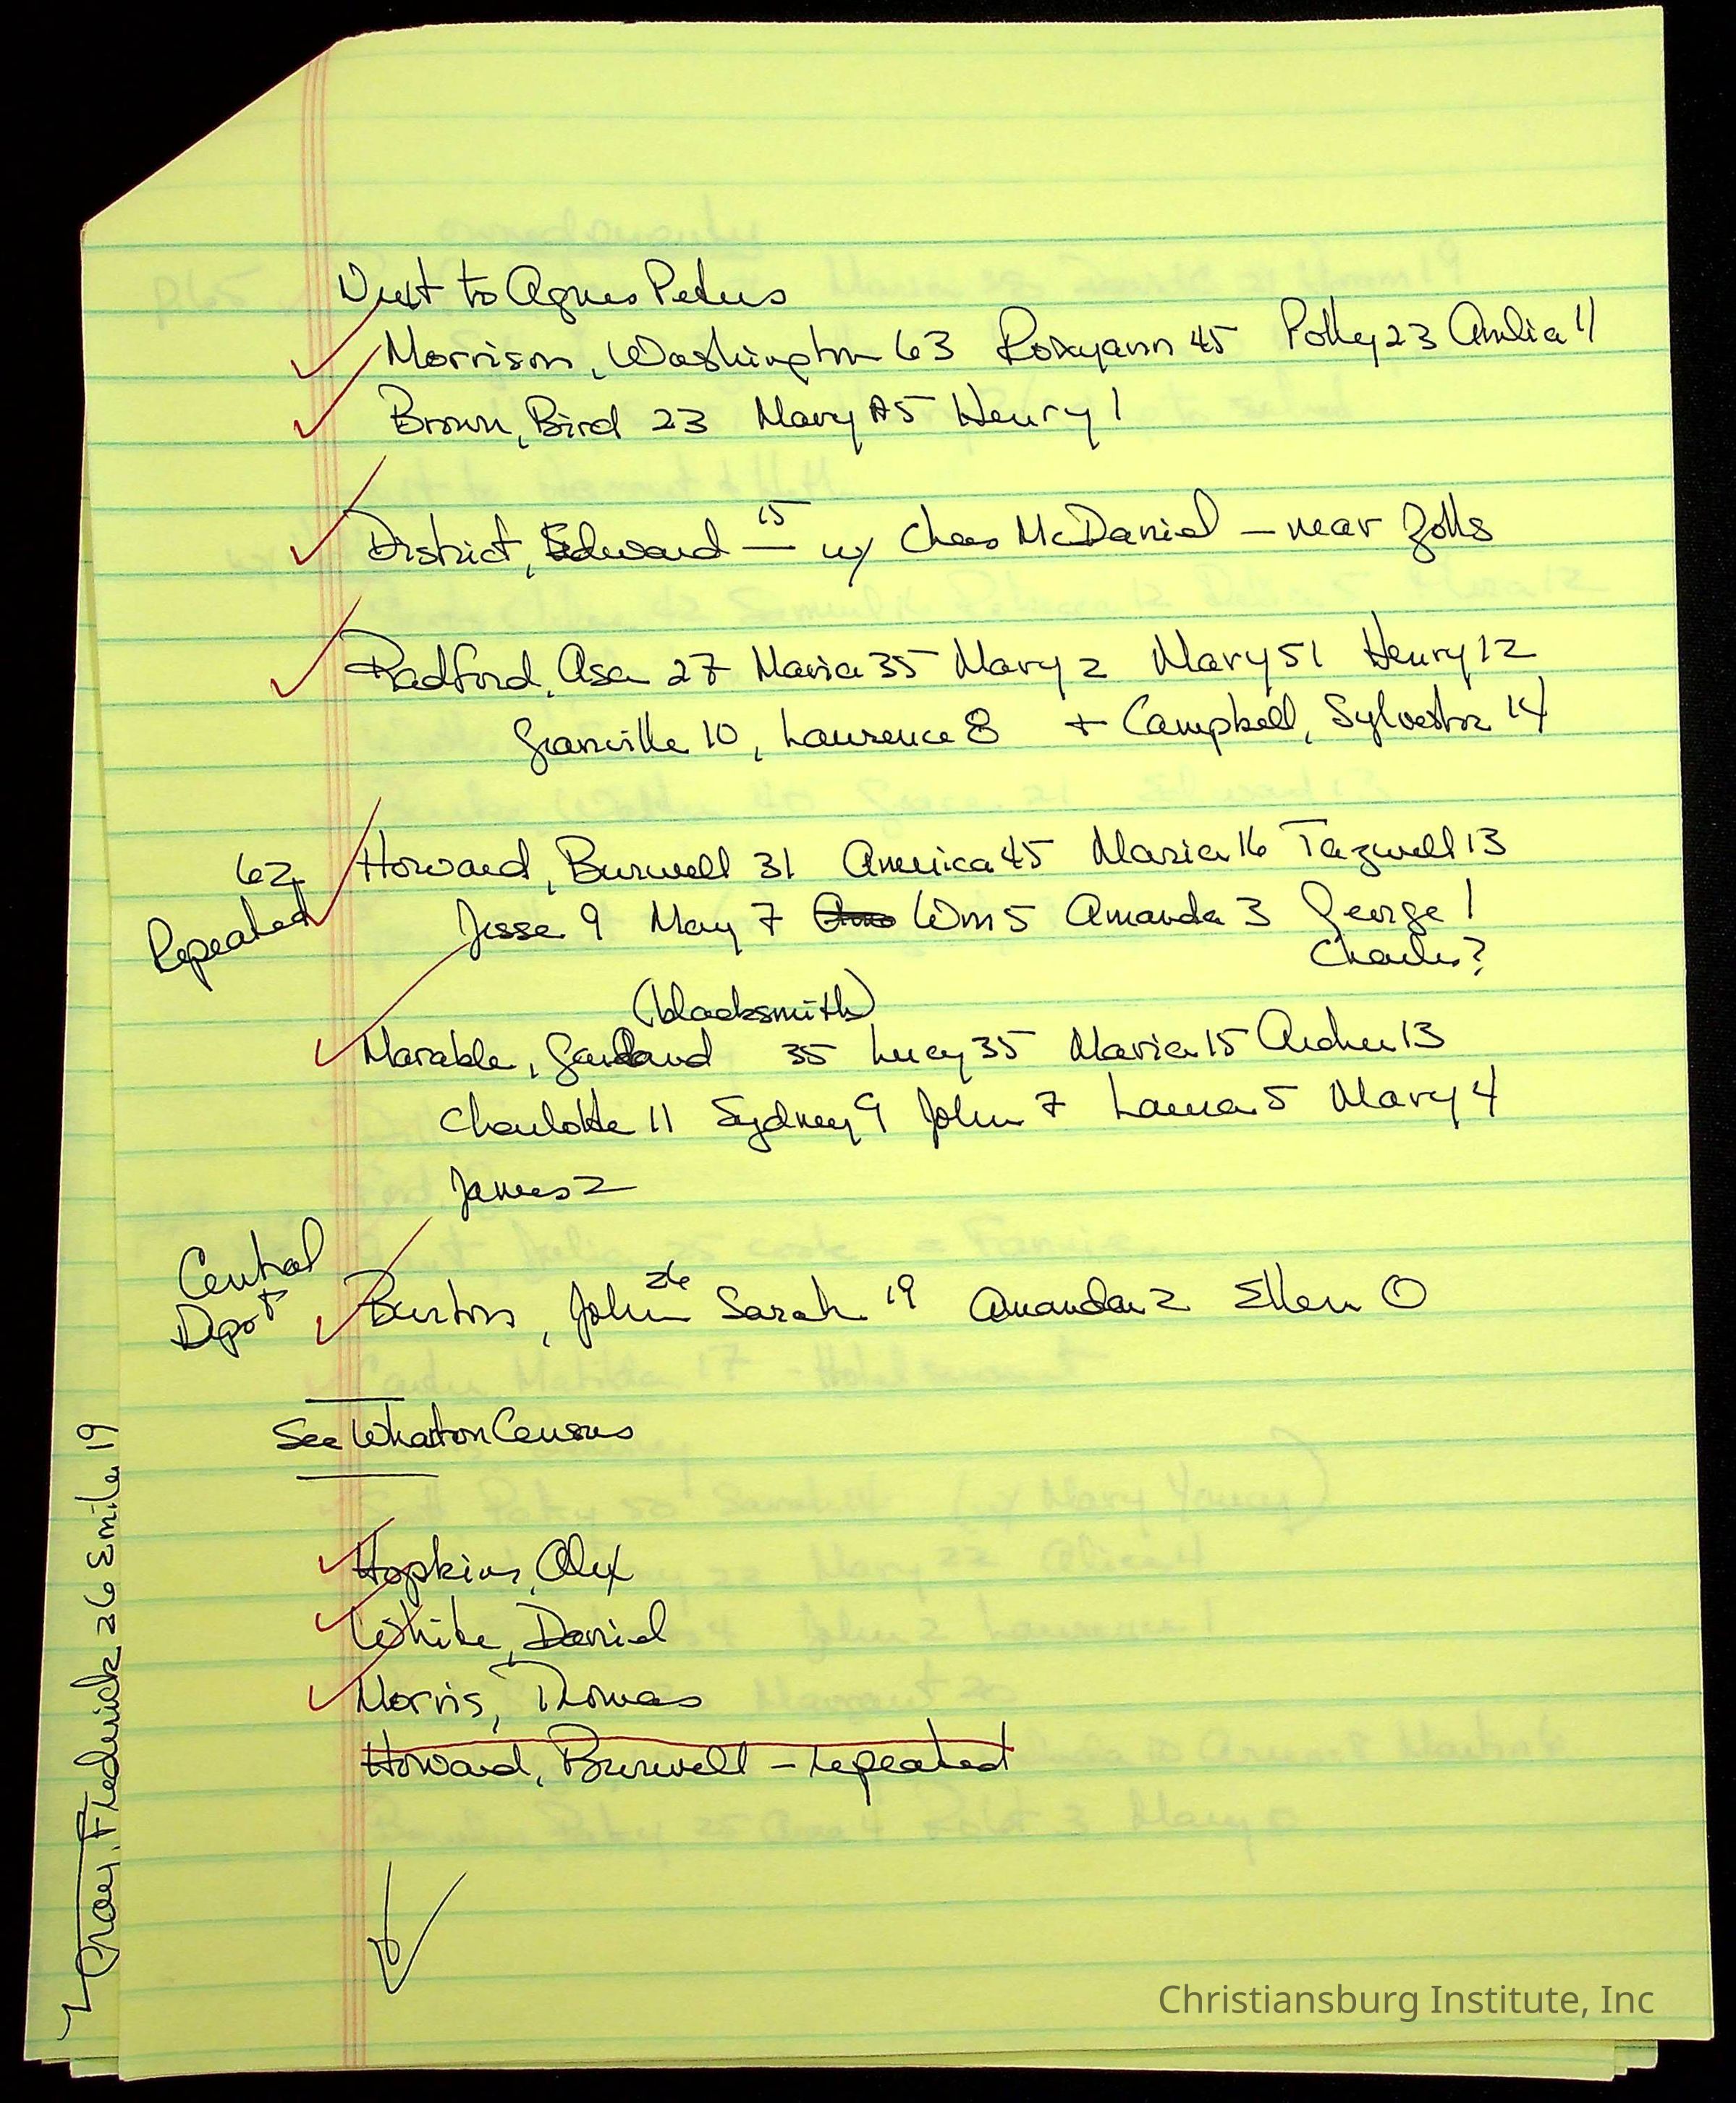 Next to Agnes Peters
Morrison, Washington 63 Roxyann 45 Polly 23 Amelia 11
Brown, Bird 23 Mary 5 Henry 1
District, Edward — 15 w/ Chas McDaniel — near Zolls
Radford, Asa 27 Maria 35 Mary 2 Mary 51 Henry 12
Granville 10, Laurence 8 + Campbell, Sylvester 14
62 Howard, Burwell 31 America 45 Maria 16 Tazwell 13
Repeated
Jesse 9 May 7 Wm 5 Amanda 3 George 1
Charles?
(blacksmith)
Marable, Garland 35 Lucy 35 Maria 15 Archer 13
Charlotte 11 Sydney 9 John 7 Laura 5 Mary 4
James 2
Central
Depot
Burton, John 26 Sarah 19 Amanda 2 Ellen 0
See Wharton Census
Hopkins, Alex
White, Daniel
Morris, Thomas
Howard, Burwell - repeated
Gray, Frederick 26 Emile 19
Christiansburg Institute, Inc